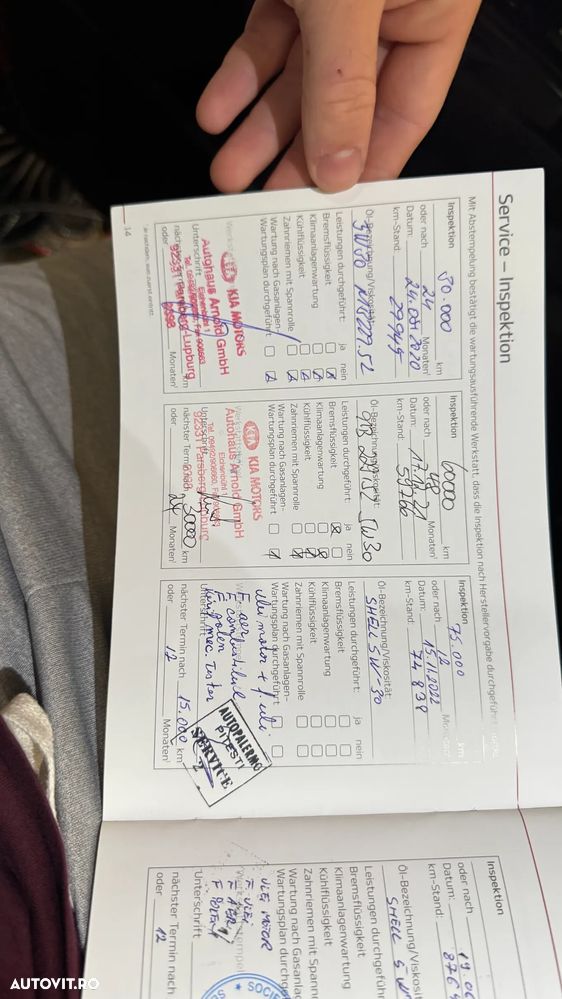 Service – Inspektion
Mit Abstempelung bestätigt die wartungsausführende Werkstatt, dass die Inspektion nach Herstellervorgabe durchgeführt
Inspektion 30.000 km
oder nach 24 Monaten¹
Datum: 24.09.2020
km-Stand: 29949
Öl-Bezeichnung/Viskosität:
5W30
Leistungen durchgeführt: ja nein
Bremsflüssigkeit
Klimaanlagenwartung
Kühlflüssigkeit
Zahnriemen mit Spannrolle
Wartung nach Gasanlagen-
Wartungsplan durchgeführt
KIA MOTORS
Autohaus Arnold GmbH
Eichenbühl 1
92331 Parsberg-Lupburg
Unterschrift
km
oder Monaten¹
14
Inspektion 60000 km
oder nach 48 Monaten¹
Datum:
km-Stand: 59760
Öl-Bezeichnung/Viskosität:
5W30
Leistungen durchgeführt: ja nein
Bremsflüssigkeit
Klimaanlagenwartung
Kühlflüssigkeit
Zahnriemen mit Spannrolle
Wartung nach Gasanlagen-
Wartungsplan durchgeführt
KIA MOTORS
Autohaus Arnold GmbH
Eichenbühl 1
92331 Parsberg-Lupburg
Unterschrift
nächster Termin nach 30000 km
oder 24 Monaten¹
Inspektion 75.000 km
oder nach 12 Monaten¹
Datum: 15.11.2022
km-Stand: 74838
Öl-Bezeichnung/Viskosität:
SHELL 5W-30
Leistungen durchgeführt: ja nein
Bremsflüssigkeit
Klimaanlagenwartung
Kühlflüssigkeit
Zahnriemen mit Spannrolle
Wartung nach Gasanlagen-
Wartungsplan durchgeführt
ulei motor + F ulei
F aer
F combustibil
F polen
Tester
AUTOPALERMO
PITESTI
SERVICE
2
nächster Termin nach 15.000 km
oder 12 Monaten¹
Inspektion
oder nach
Datum: 19.06
km-Stand: 876
Öl-Bezeichnung/Viskosi
SHELL 5W
Leistungen durchgeführ
Bremsflüssigkeit
Klimaanlagenwartung
Kühlflüssigkeit
Zahnriemen mit Spann
Wartung nach Gasanla
Wartungsplan durchge
ULEI MOTOR
F ULEI
F AER
F POLEN
SOCIE
Unterschrift
nächster Termin nach
oder 12
AUTOVIT.RO